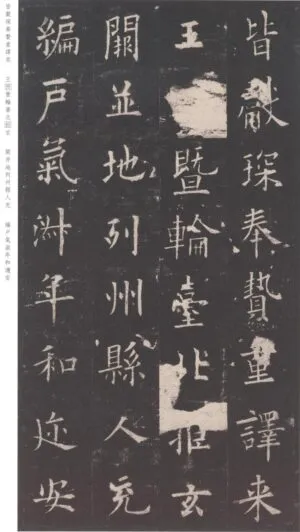 皆獻琛奉贄重譯来
王暨輪臺北拒玄
闕並地列州縣人充
編戶氣淑年和迩安
皆獻琛奉贄重譯來 王西暨輪臺北拒玄 闕并地列州縣人充 編戶氣淑年和邇安